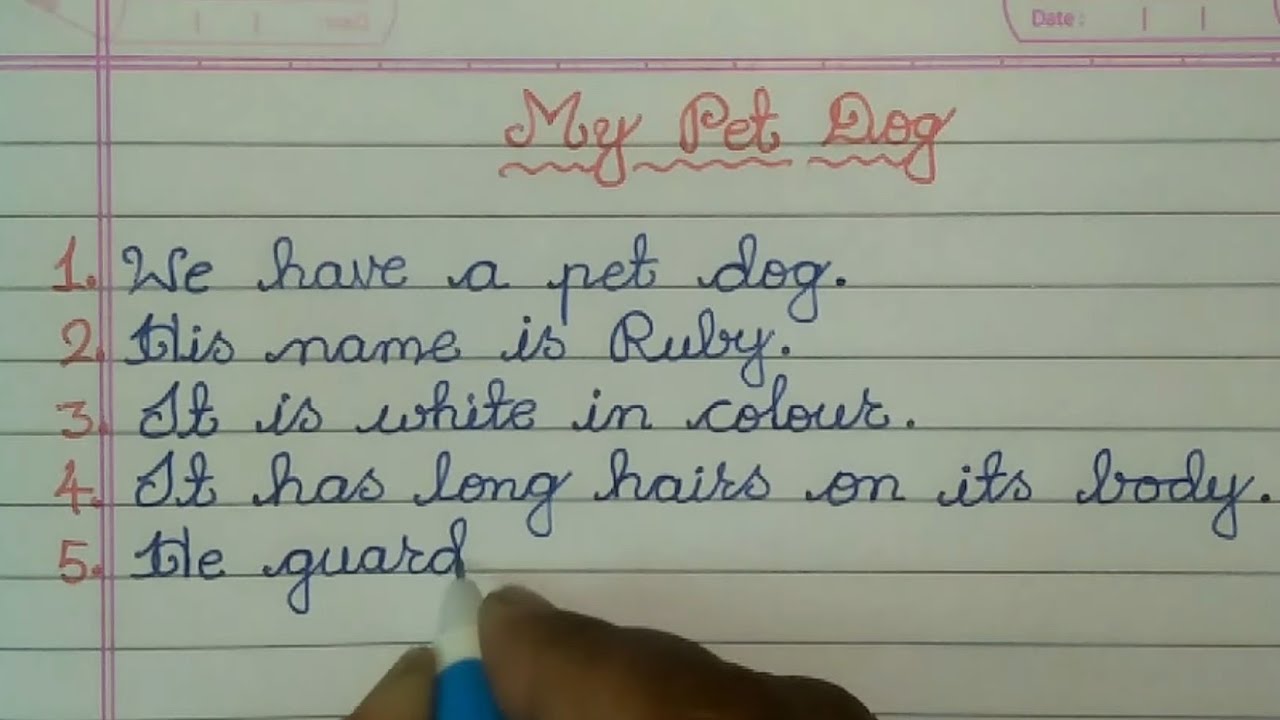 Date :
My Pet Dog
1. We have a pet dog.
2. His name is Ruby.
3. It is white in colour.
4. It has long hairs on its body.
5. He guard